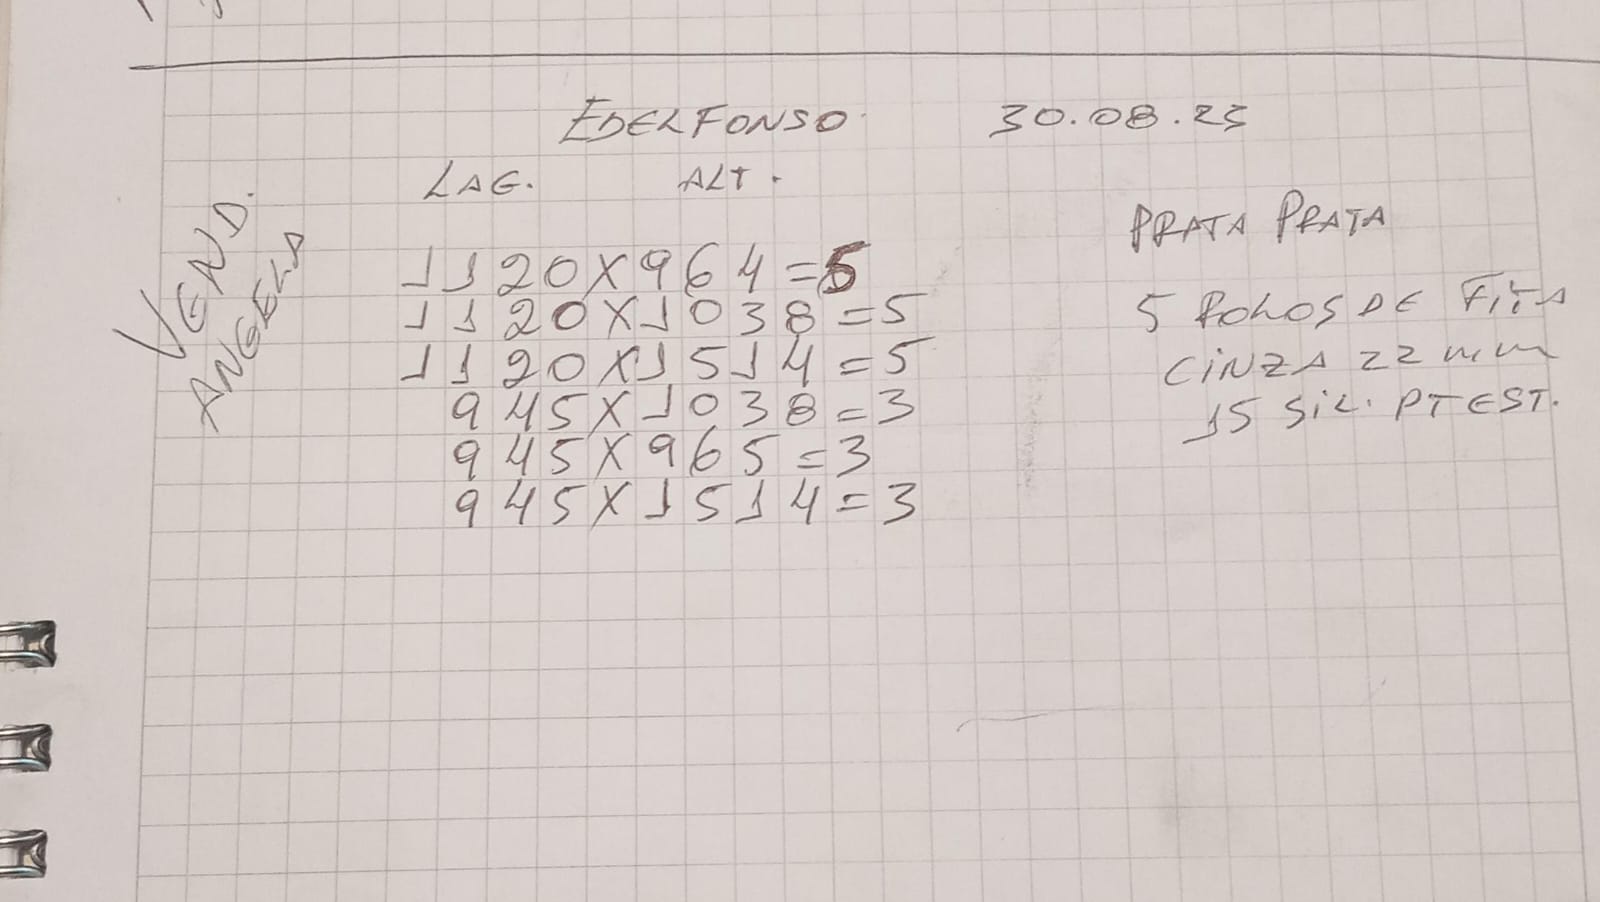 EDELFONSO 30.08.25
LAG. ALT.
VEND.
ANGELA
PRATA PRATA
1120X964=5
1120X1038=5
1120X1514=5
945X1038=3
945X965=3
945X1514=3
5 ROLOS DE FITA
CINZA 22 mm
15 SIL. PT EST.